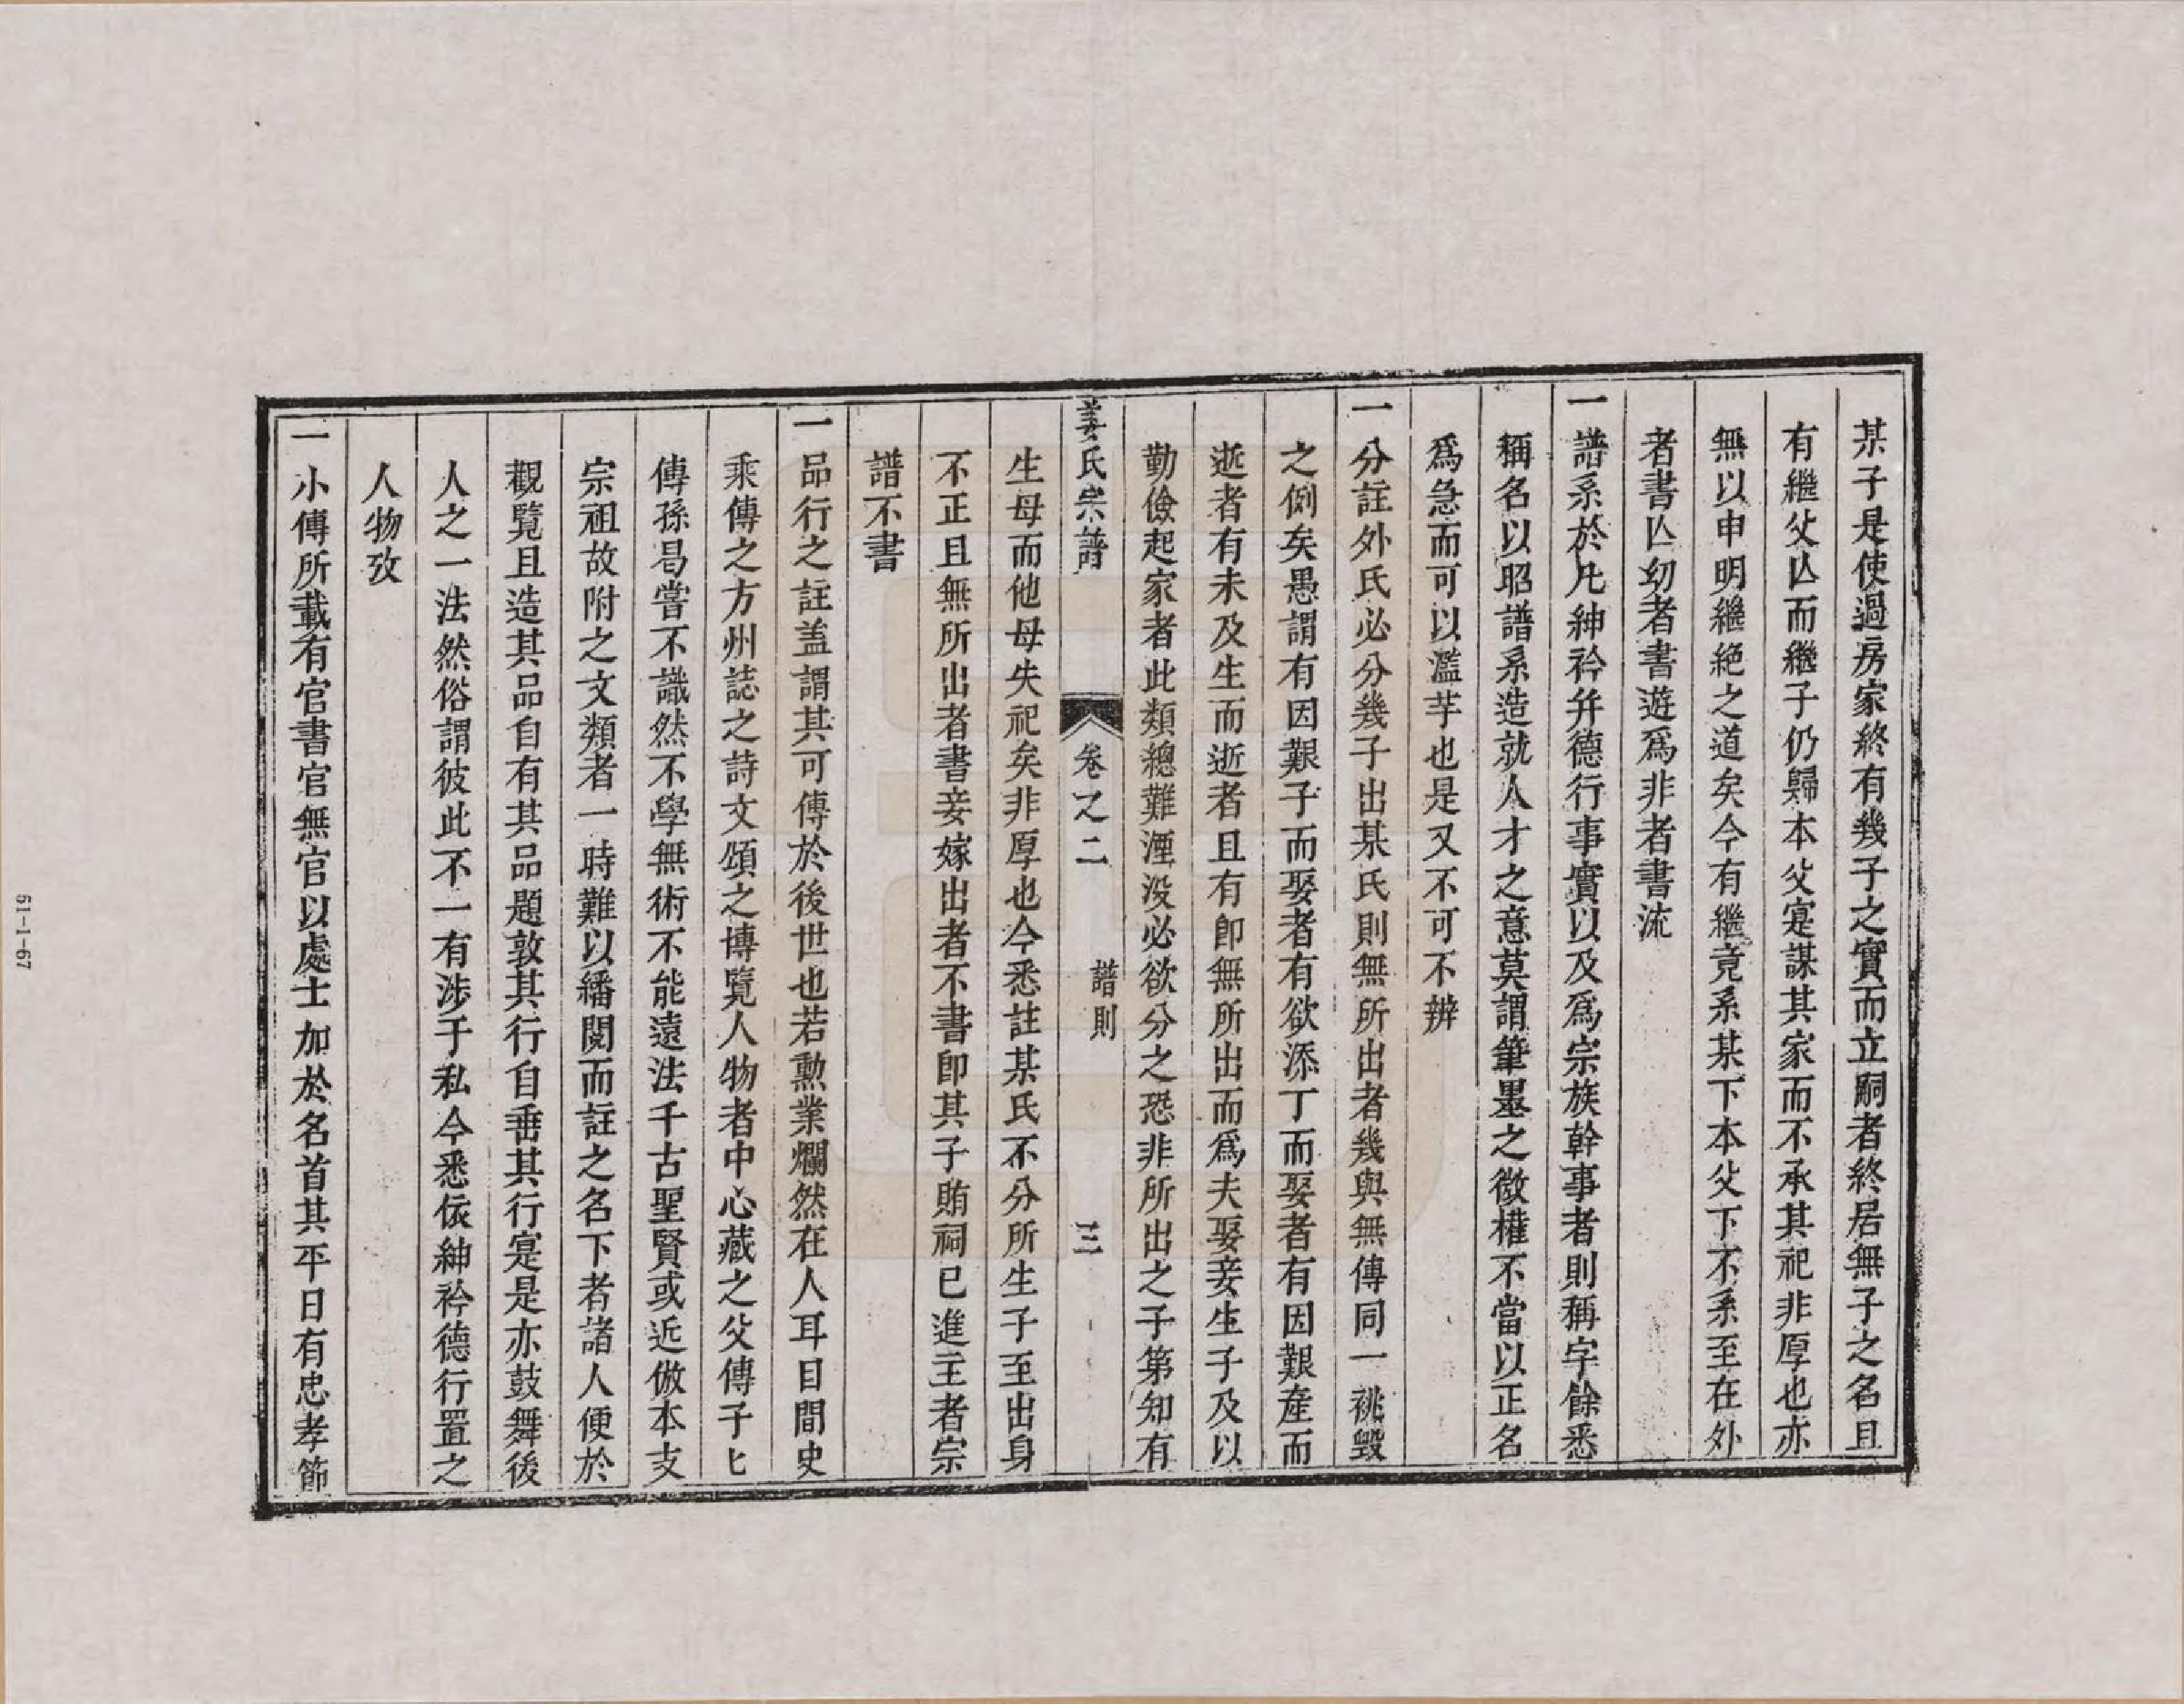 某子是使過房家終有幾子之實而立嗣者終居無子之名且
有繼父亾而繼子仍歸本父寔謀其家而不承其祀非厚也亦
無以申明繼絕之道矣今有繼竟系某下本父下不系至在外
者書亾幼者書遊爲非者書流
一譜系於凡紳衿弁德行事實以及爲宗族幹事者則稱字餘悉
稱名以昭譜系造就人才之意莫謂筆墨之微權不當以正名
爲急而可以濫芋也是又不可不辨
一分註外氏必分幾子出某氏則無所出者幾與無傳同一祧毀
之例矣愚謂有因艱子而娶者有欲添丁而娶者有因艱産而
逝者有未及生而逝者且有卽無所出而爲夫娶妾生子及以
勤儉起家者此類總難湮没必欲分之恐非所出之子第知有
姜氏宗譜
卷之二
譜則
三
生母而他母失祀矣非厚也今悉註某氏不分所生子至出身
不正且無所出者書妾嫁出者不書卽其子賄祠已進主者宗
譜不書
一品行之註盖謂其可傳於後世也若勳業爛然在人耳目間史
乘傳之方州誌之詩文頌之博覽人物者中心藏之父傳子匕
傳孫曷嘗不識然不學無術不能遠法千古聖賢或近倣本支
宗祖故附之文類者一時難以繙閱而註之名下者諸人便於
觀覽且造其品自有其品題敦其行自垂其行寔是亦鼓舞後
人之一法然俗謂彼此不一有涉于私今悉依紳衿德行置之
人物攷
一小傳所載有官書官無官以處士加於名首其平日有忠孝節
61-1-67